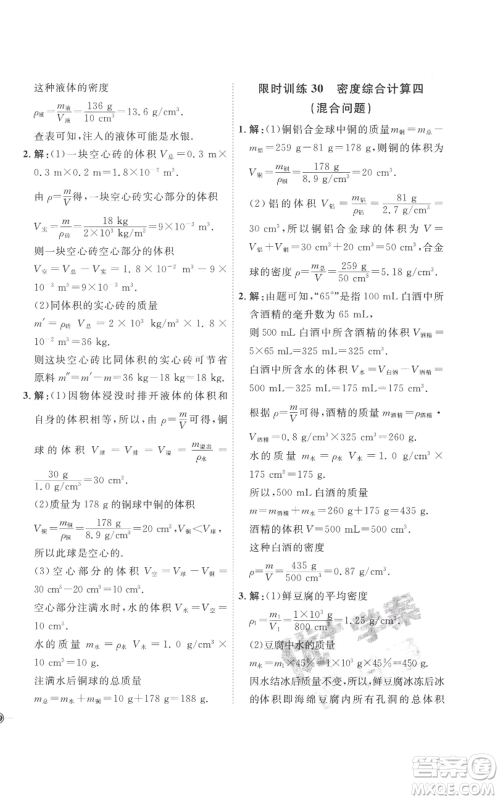 这种液体的密度
ρ液=m液/V液=136 g/10 cm³=13.6 g/cm³.
查表可知,注入的液体可能是水银.
2. 解:(1)一块空心砖的体积 V总=0.3 m×
0.3 m×0.2 m=1.8×10⁻² m³.
由 ρ=m/V 可得,一块空心砖实心部分的体积
V实=m/ρ砖=18 kg/2×10³ kg/m³=9×10⁻³ m³.
则一块空心砖空心部分的体积
V空=V总-V实=1.8×10⁻² m³-9×
10⁻³ m³=9×10⁻³ m³.
(2)同体积的实心砖的质量
m′=ρ砖V总=2×10³ kg/m³×1.8×
10⁻² m³=36 kg.
所以这块空心砖与同体积实心砖相比节省
原料 m″=36 kg-18 kg=18 kg.
3. 解:(1)因物体浸没时排开液体的体积和
自身的体积相等,所以,由 ρ=m/V 可得,铜
球的体积 V球=V水=V溢=m溢出/ρ水=
30 g/1.0 g/cm³=30 cm³.
(2)质量为 178 g 的铜球中铜的体积
V铜=m铜/ρ铜=178 g/8.9 g/cm³=20 cm³, V铜<V球;
所以此球是空心的.
(3)空心部分的体积 V空=V球-V铜=
30 cm³-20 cm³=10 cm³.
空心部分注满水时,水的体积 V水=V空=
10 cm³.
水的质量 m水=ρ水V水=1.0 g/cm³×
10 cm³=10 g.
注满水后铜球的总质量
m总=m水+m铜=10 g+178 g=188 g.
限时训练 30 密度综合计算四
(混合问题)
1. 解:(1)铜铝合金球中铜的质量 m铜=m-
m铝=259 g-81 g=178 g,则铜的体积
V铜=m铜/ρ铜=178 g/8.9 g/cm³=20 cm³.
(2)铝的体积 V铝=m铝/ρ铝=81 g/2.7 g/cm³=
30 cm³,所以铜铝合金球的体积 V=
V铝+V铜=30 cm³+20 cm³=50 cm³,合金
球的密度 ρ=m/V=259 g/50 cm³=5.18 g/cm³.
2. 解:由题可知,“65°”是指 100 mL 白酒中所
含酒精的毫升数为 65 mL,
则 500 mL 白酒中所含酒精的体积 V酒精=
5×65 mL=325 mL=325 cm³.
500 mL 白酒中所含水的体积 V水=V-
V酒精=500 mL-325 mL=175 mL=
175 cm³.
根据 ρ=m/V 可得,酒精的质量 m酒精=ρ酒精
V酒精=0.8 g/cm³×325 cm³=260 g.
水的质量 m水=ρ水V水=1.0 g/cm³×
175 cm³=175 g.
所以,500 mL 白酒的质量
m=m酒精+m水=260 g+175 g=435 g.
这种白酒的密度
ρ=m/V=435 g/500 cm³=0.87 g/cm³.
3. 解:(1)鲜豆腐的平均密度
ρ₁=m₁/V₁=1×10³ g/800 cm³=1.25 g/cm³.
(2)豆腐中水的质量
m水=m₁×45%=1×10³ g×45%=450 g.
因水结冰后质量不变,三鲜豆腐内所含水结